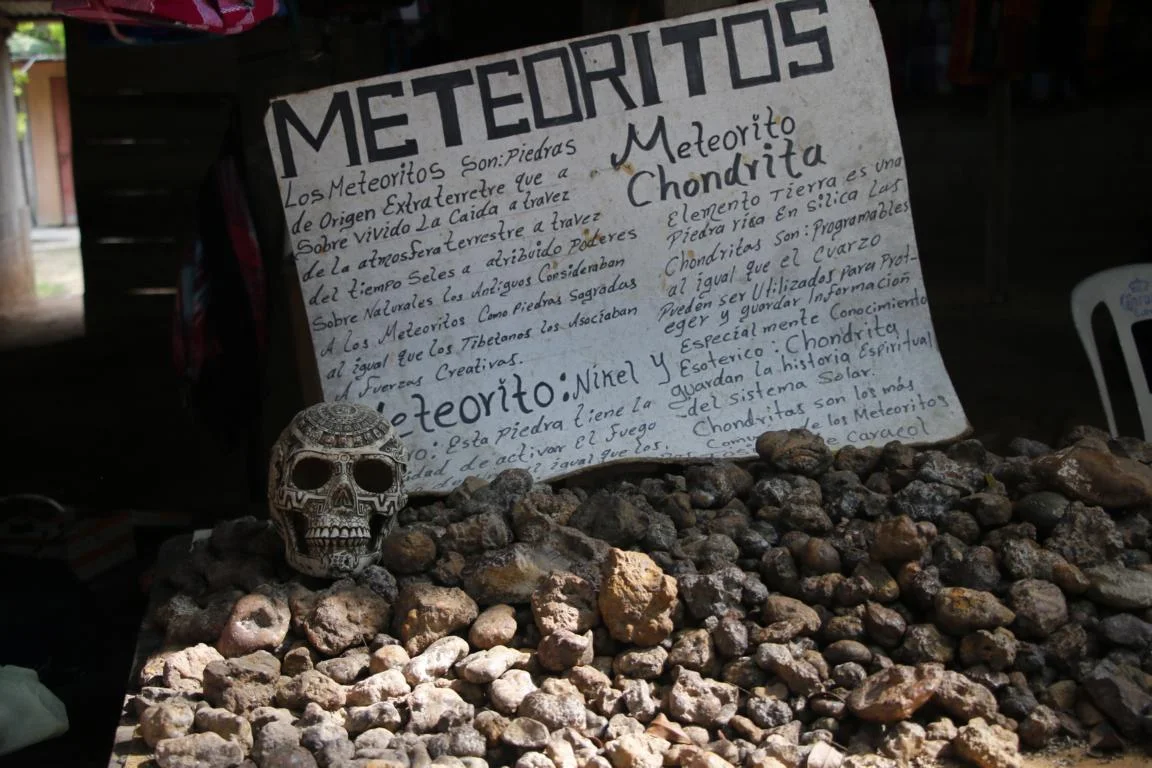 METEORITOS
Los Meteoritos Son: Piedras
de Origen Extraterretre que a
Sobre vivido La Caida a travez
de la atmosfera terrestre a travez
del tiempo Seles a atribuido Poderes
Sobre Naturales los Antiguos Consideraban
A los Meteoritos Como Piedras Sagradas
al igual que los Tibetanos los Asociaban
A fuerzas Creativas.
Meteorito: Nikel y
ro: Esta Piedra tiene la
dad de activar El fuego
al igual que los.
Meteorito
Chondrita
Elemento Tierra es una
Piedra rica En Silica Las
Chondritas Son: Programables
al igual que el Cuarzo
Pueden ser Utilizados para Prot-
eger y guardar Información
Especialmente Conocimiento
Esoterico: Chondrita
guardan la historia Espiritual
del sistema Solar.
Chondritas son los más
de los Meteoritos
de Caracol